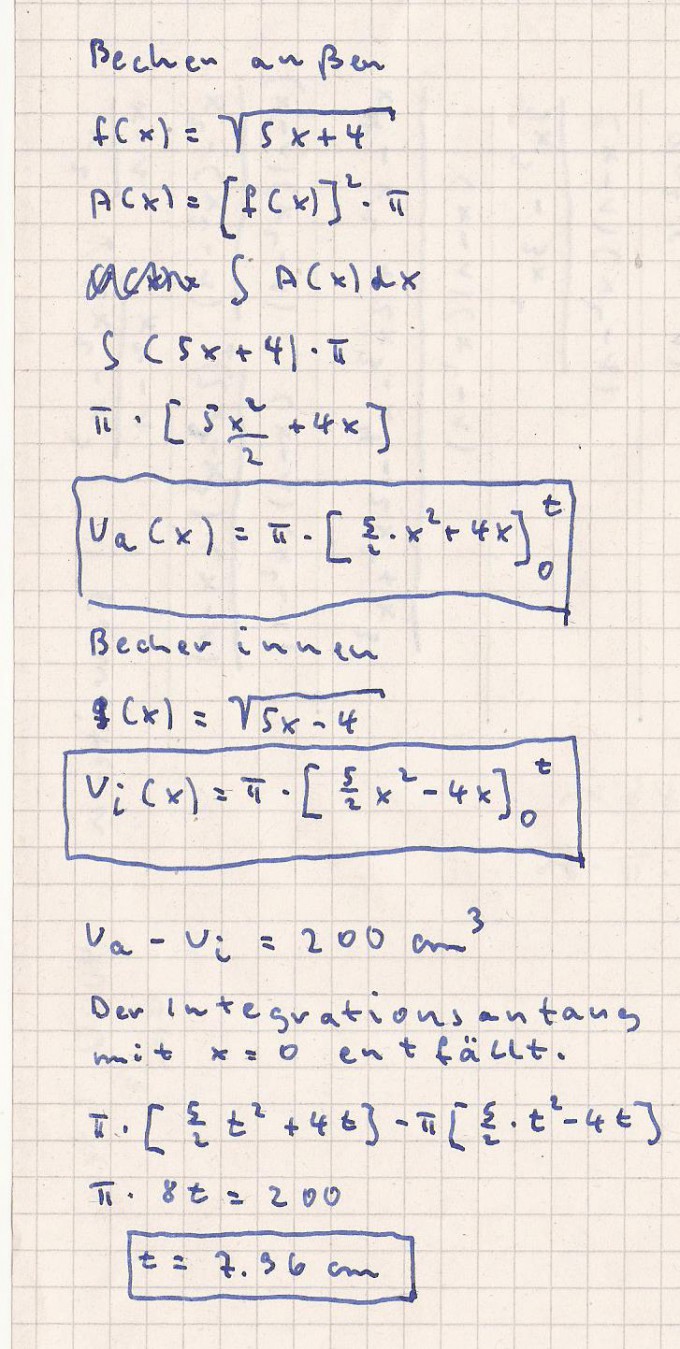 Becher außen
f(x) = √(5x+4)
A(x) = [f(x)]² · π
∫ A(x) dx
∫ (5x+4) · π
π · [5 x²/2 + 4x]
Va(x) = π · [5/2 · x² + 4x]₀ᵗ
Becher innen
f(x) = √(5x-4)
Vi(x) = π · [5/2 x² - 4x]₀ᵗ
Va - Vi = 200 cm³
Der Integrationsanfang
mit x = 0 entfällt.
π · [5/2 t² + 4t] - π [5/2 · t² - 4t]
π · 8t = 200
t = 7.96 cm